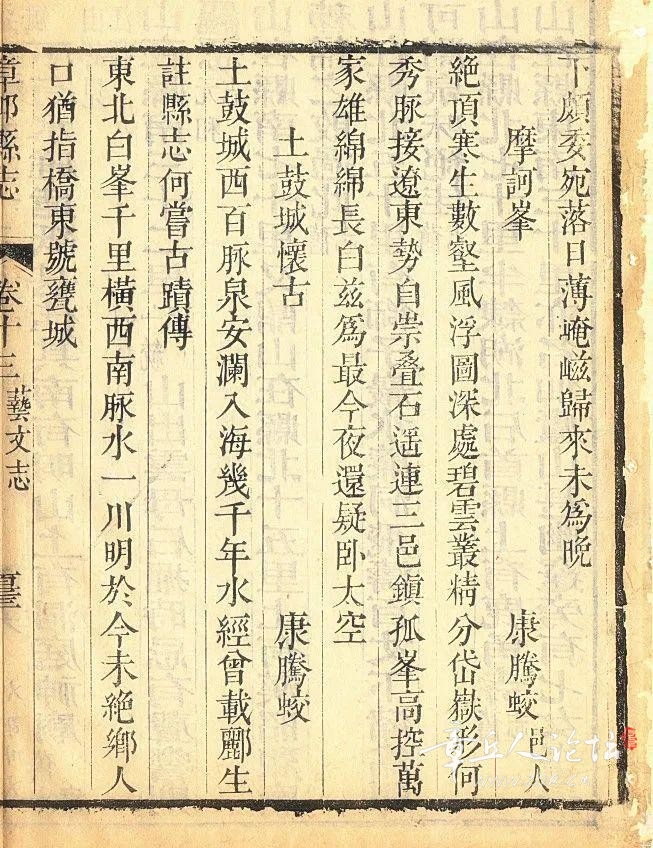 下頗委宛落日薄崦嵫歸來未爲晚
摩訶峯 康騰蛟 邑人
絶頂寒生數壑風浮圖深處碧雲叢精分岱嶽形何
秀脉接遼東勢自崇叠石遥連三邑鎮孤峯高控萬
家雄綿綿長白兹爲最今夜還疑卧太空
土鼓城懷古 康騰蛟
土鼓城西百脉泉安瀾入海幾千年水經曾載酈生
註縣志何嘗古蹟傳
東北白峯千里橫西南脉水一川明於今未絶鄉人
口猶指橋東號甕城
章邱縣志 卷十三 藝文志
章丘人论坛